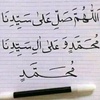 اللهم صل على سيدنا
محمد و على ال سيدنا
محمد